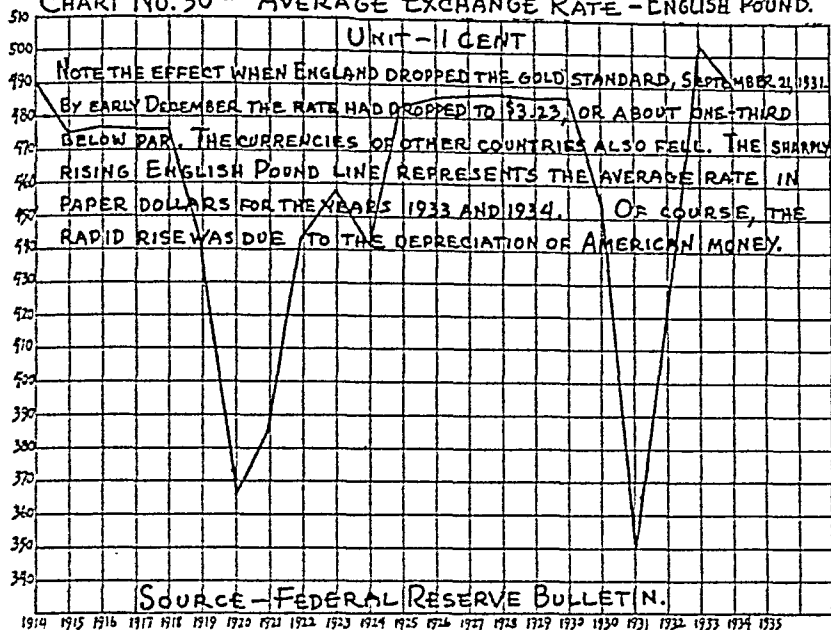 CHART NO. 30 - AVERAGE EXCHANGE RATE - ENGLISH POUND.
UNIT - 1 CENT
NOTE THE EFFECT WHEN ENGLAND DROPPED THE GOLD STANDARD, SEPTEMBER 21, 1931.
BY EARLY DECEMBER THE RATE HAD DROPPED TO $3.23, OR ABOUT ONE-THIRD
BELOW PAR. THE CURRENCIES OF OTHER COUNTRIES ALSO FELL. THE SHARPLY
RISING ENGLISH POUND LINE REPRESENTS THE AVERAGE RATE IN
PAPER DOLLARS FOR THE YEARS 1933 AND 1934. OF COURSE, THE
RAPID RISE WAS DUE TO THE DEPRECIATION OF AMERICAN MONEY.
510
500
490
480
470
460
450
440
430
420
410
400
390
380
370
360
350
340
SOURCE - FEDERAL RESERVE BULLETIN.
1914 1915 1916 1917 1918 1919 1920 1921 1922 1923 1924 1925 1926 1927 1928 1929 1930 1930 1931 1932 1933 1934 1935